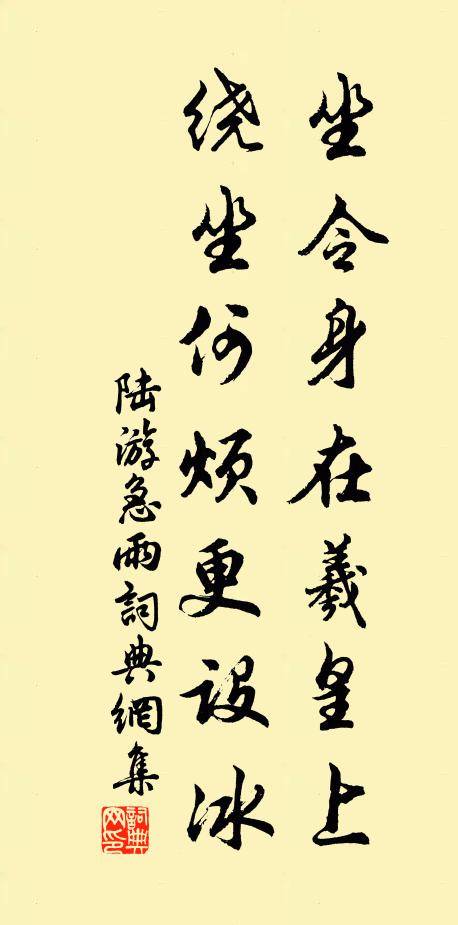 坐令身在羲皇上
绕坐何烦更设冰
陆游急雨詞典網集
詞典网印